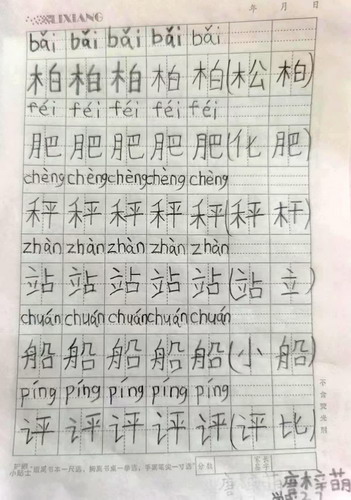 LIXIANG
年 月 日
bǎi bǎi bǎi bǎi bǎi
柏 柏 柏 柏 柏(松 柏)
féi féi féi féi féi
肥 肥 肥 肥 肥(化 肥)
chèng chèng chèng chèng chèng
秤 秤 秤 秤 秤(秤 杆)
zhàn zhàn zhàn zhàn zhàn
站 站 站 站 站(站 立)
chuán chuán chuán chuán chuán
船 船 船 船 船(小 船)
píng píng píng píng píng
评 评 评 评 评(评 比)
小贴士